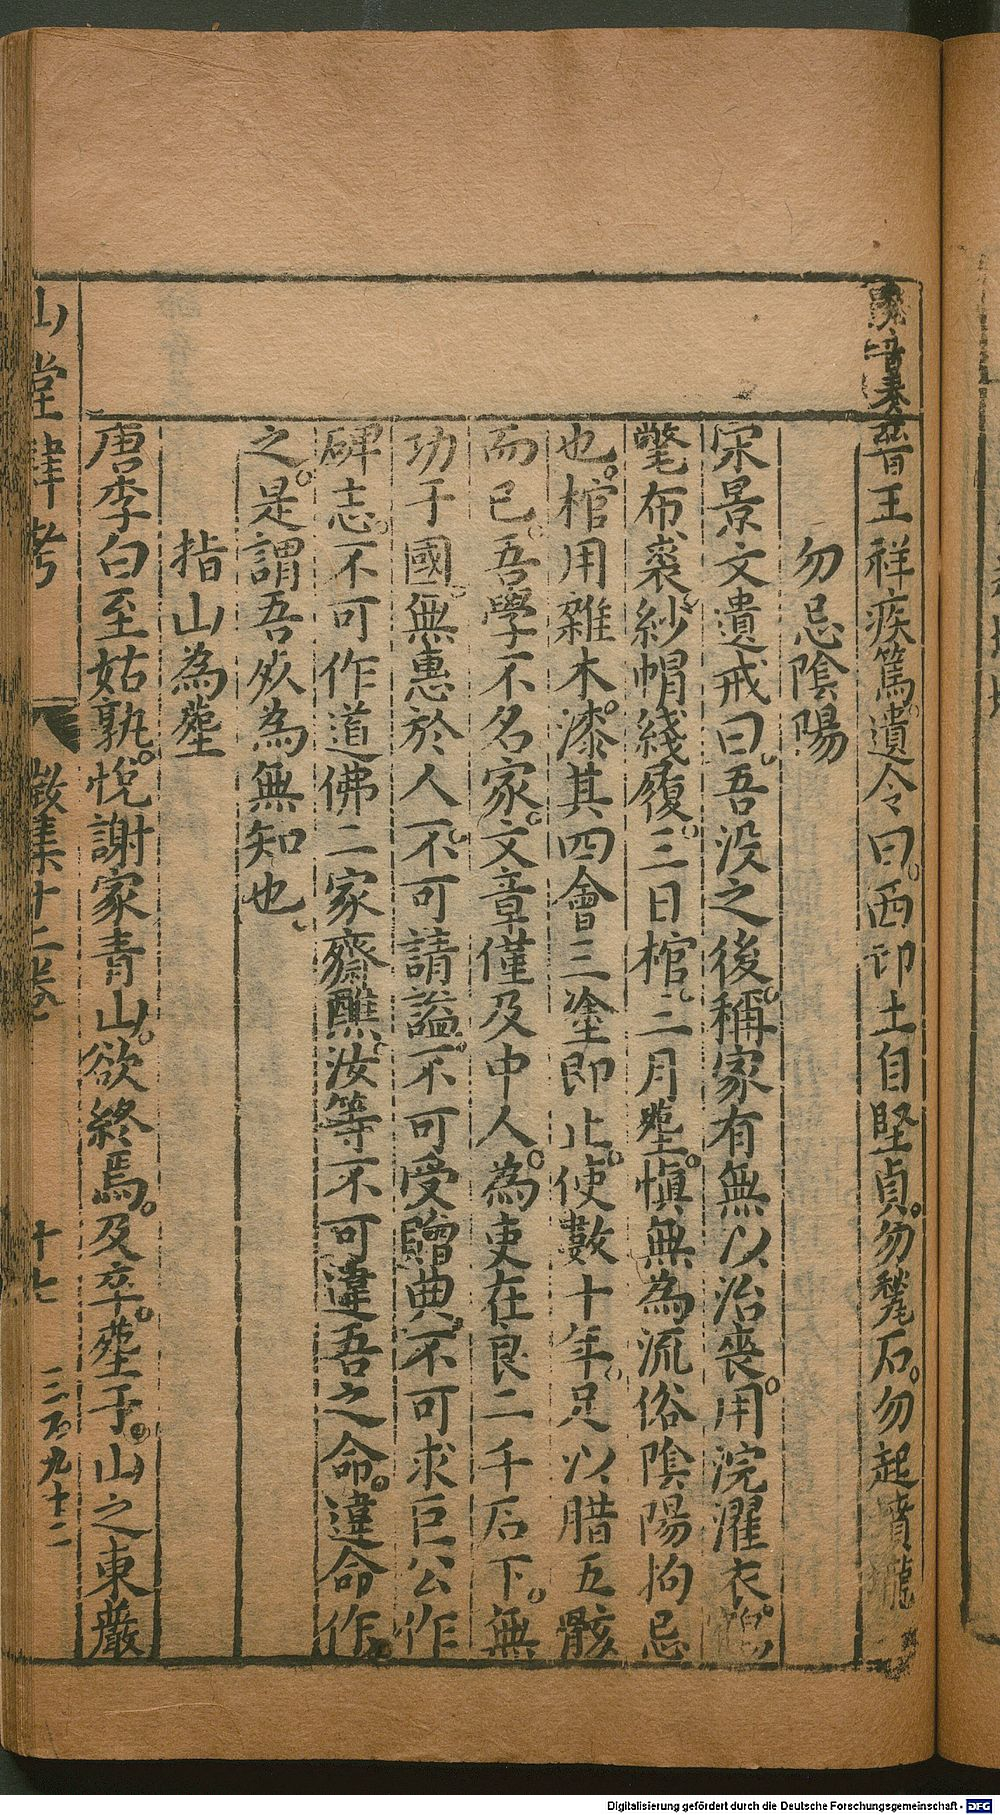 甃音奏
晉王祥疾篤遺令曰西卭土自堅貞勿甃石勿起墳壠
勿忌陰陽
宋景文遺戒曰吾沒之後稱家有無以治喪用浣濯衣鶴
氅布裘紗帽綫履三日棺三月塟慎無為流俗陰陽拘忌
也棺用雜木漆其四會三塗即止使數十年足以腊五骸
而已吾學不名家文章僅及中人為吏在良二千石下無
功于國無惠於人不可請謚不可受贈典不可求巨公作
碑志不可作道佛二家齋醮汝等不可違吾之命違命作
之是謂吾死為無知也
指山為塟
唐李白至姑孰悅謝家青山欲終焉及卒塟于山之東巖
山堂肆考
徵集十二卷
十七
三百九十二
Digitalisierung gefördert durch die Deutsche Forschungsgemeinschaft - DFG